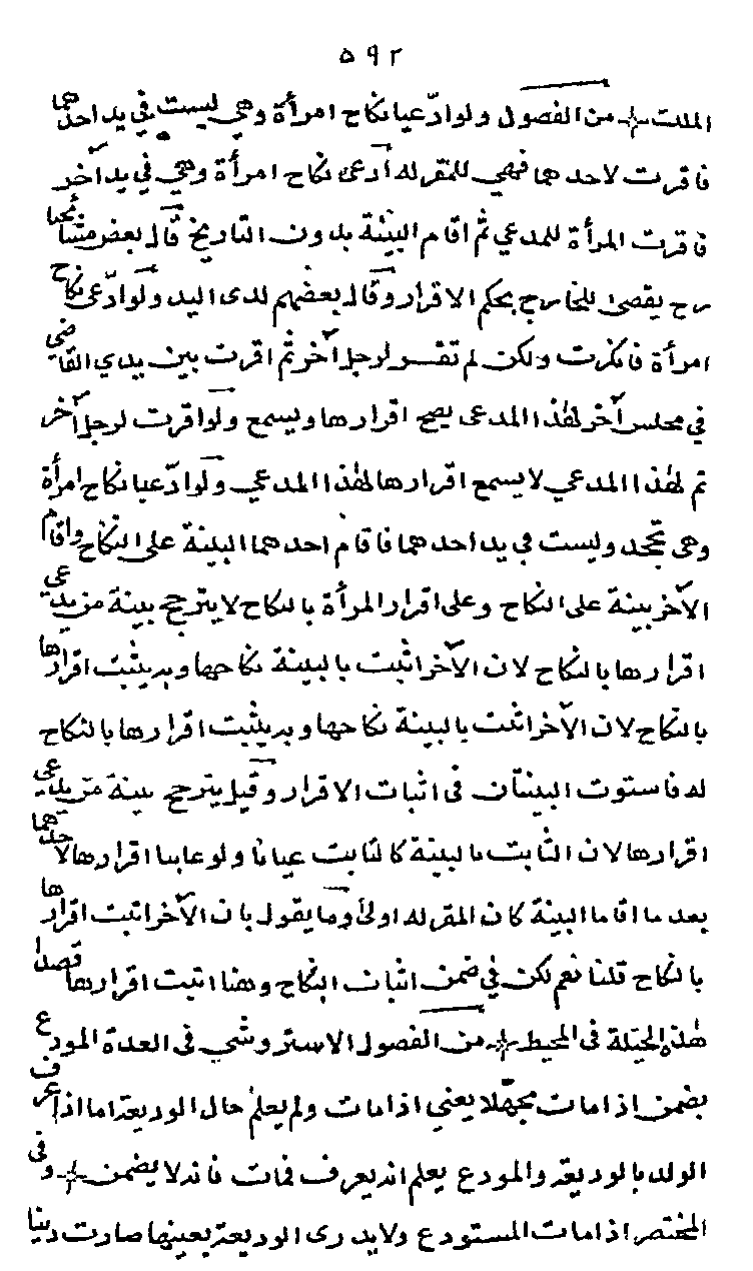 ٥٩٢
الملت من الفصول ولو ادّعيا نكاح امرأة وهي ليست في يد احدهما
فاقرت لاحدهما فهي للمقر له ادعى نكاح امرأة وهي في يد آخر
فاقرت المرأة للمدعي ثم اقام البينة بدون التاريخ قال بعض مشايخنا
رح يقضى للخارج بحكم الاقرار وقال بعضهم لذى اليد ولو ادّعى نكاح
امرأة فانكرت ولكن لم تقر لرجل آخر ثم اقرت بين يدي القاضي
في مجلس آخر لهذا المدعى يصح اقرارها ويسمع ولو اقرت لرجل آخر
ثم لهذا المدعي لا يسمع اقرارها لهذا المدعي ولو ادّعيا نكاح امرأة
وهي تجحد وليست في يد احدهما فاقام احدهما البينة على النكاح واقام
الآخر بينة على النكاح وعلى اقرار المرأة بالنكاح لا يترجح بينة من يدعي
اقرارها بالنكاح لان الآخر اثبت بالبينة نكاحها وبه يثبت اقرارها
بالنكاح لان الآخر اثبت بالبينة نكاحها وبه يثبت اقرارها بالنكاح
له فاستوت البينتان فى اثبات الاقرار وقيل يترجح بينة من يدعي
اقرارها لان الثابت بالبينة كالثابت عيانا ولو عاينا اقرارها لاحدهما
بعد ما اقاما البينة كان المقر له اولى وما يقول بان الآخر اثبت اقرارها
بالنكاح قلنا نعم لكن في ضمن اثبات النكاح وهنا اثبت اقرارها قصدا
هذه الجملة فى المحيط من الفصول الاستروشي فى العدة المودع
يضمن اذا مات مجهّلا يعني اذا مات ولم يعلم حال الوديعة اما اذا عرف
الولد بالوديعة والمودع يعلم انه يعرف فمات فانه لا يضمن وفى
المختصر اذا مات المستودع ولا يدرى الوديعة بعينها صارت دينا